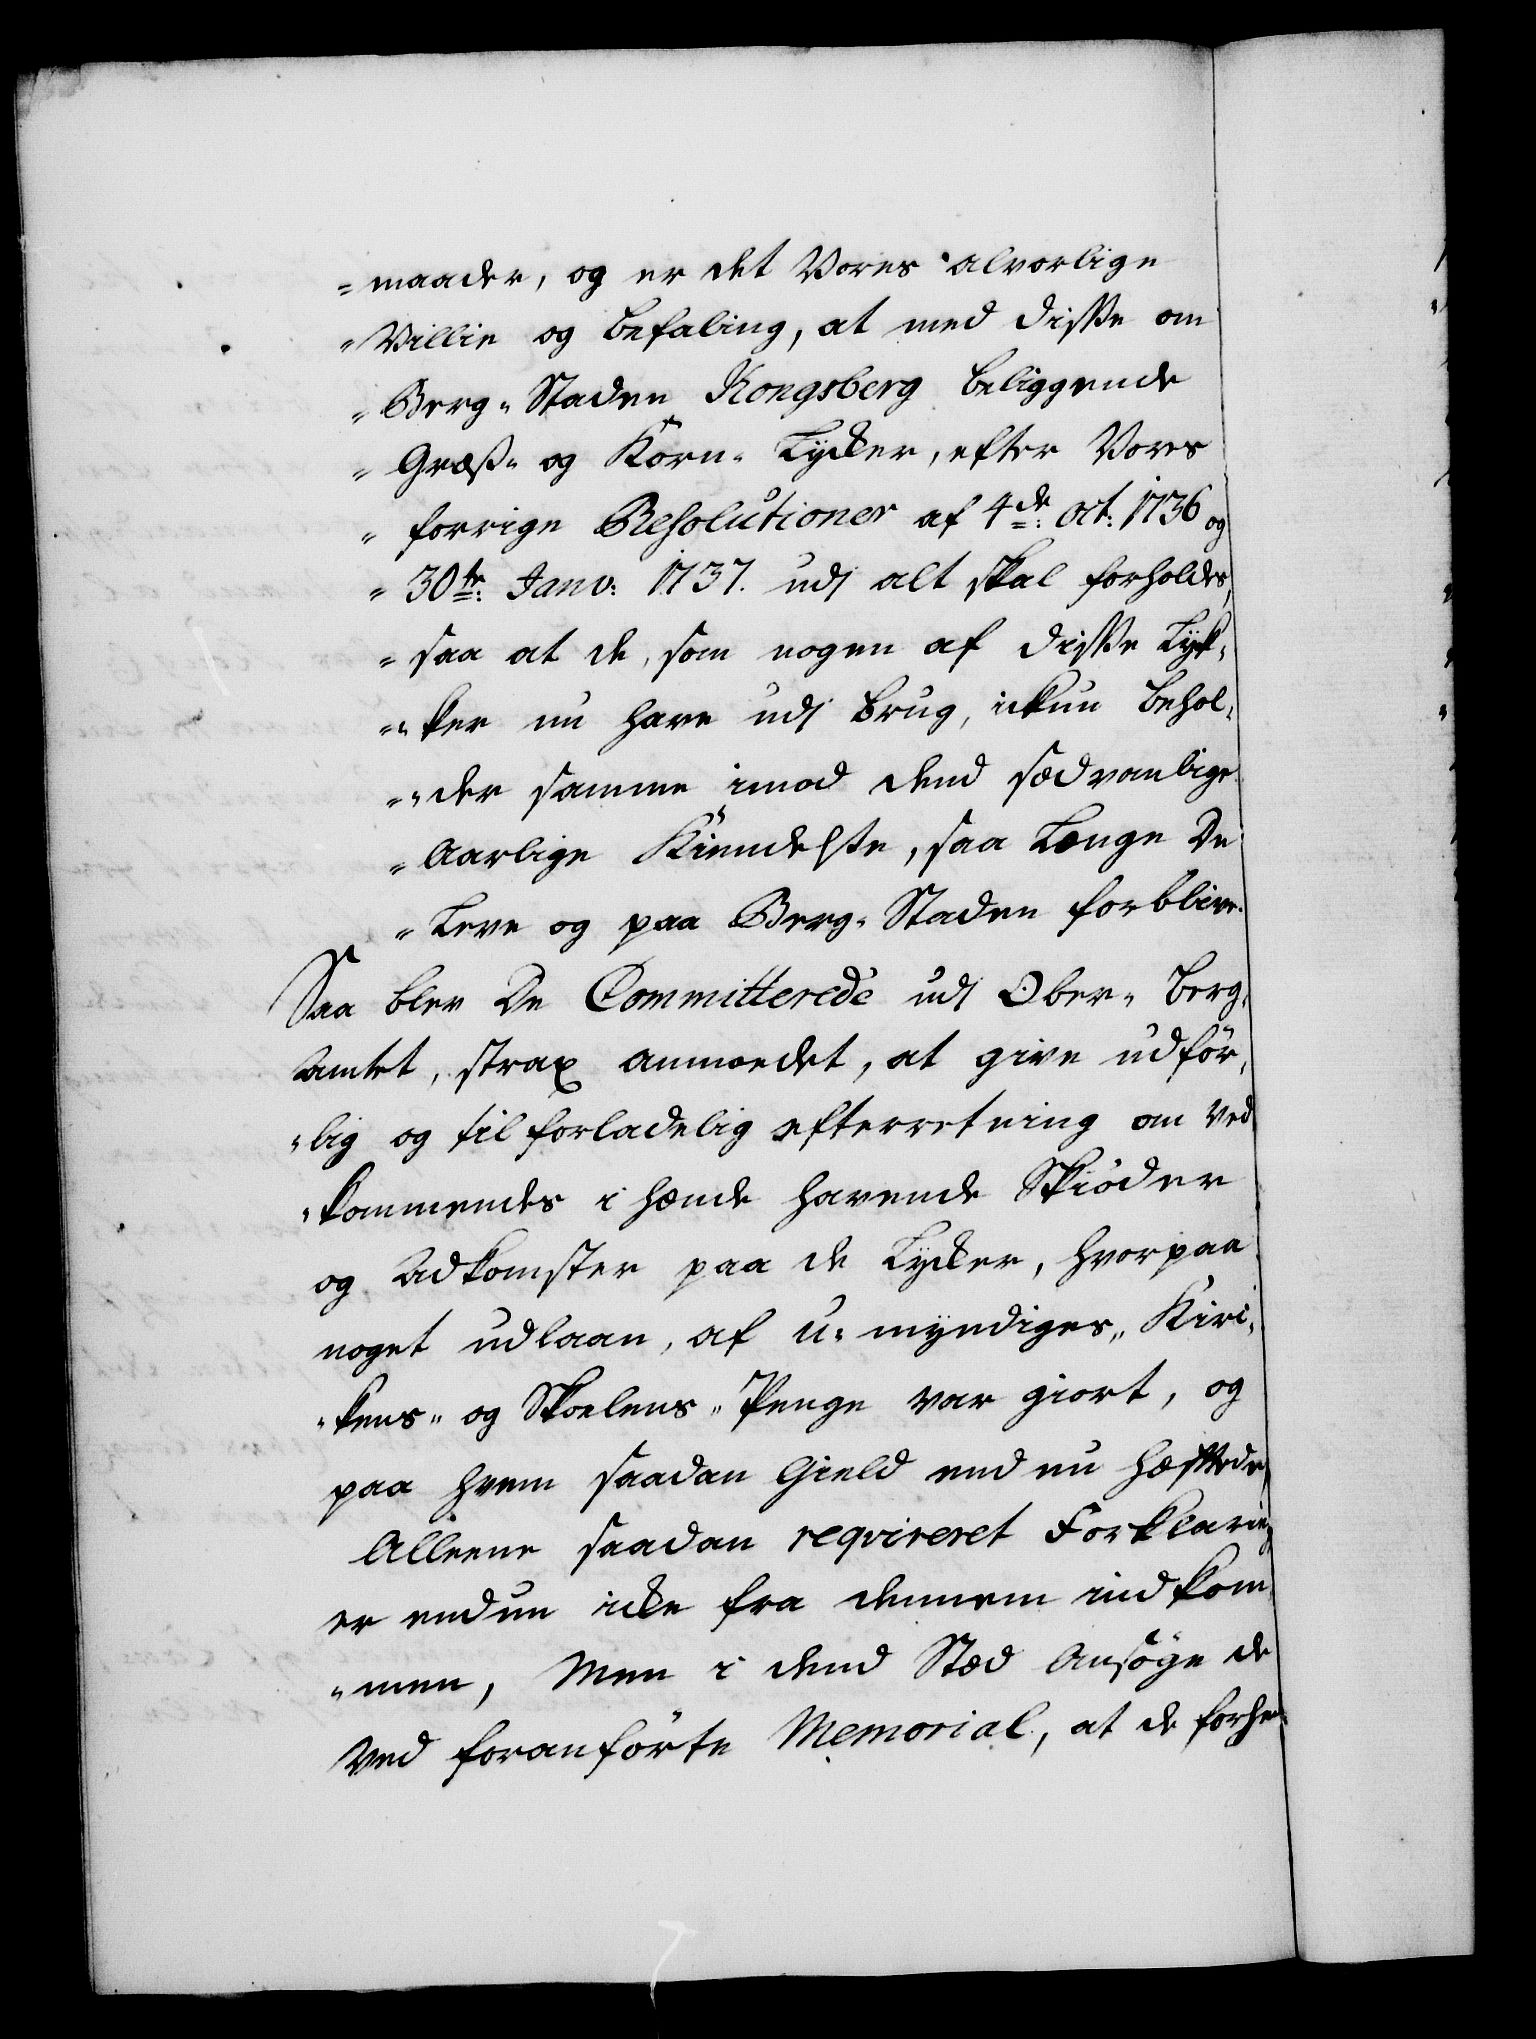 "maader, og er det Vores alvorlige
"Villie og befaling, at med disse om
"Berg-Staden Kongsberg beliggende
"Græss- og Korn-Lycker, efter Vores
"forrige Resolutioner af 4de: Oct: 1736 og
"30te: Janv: 1737. udj alt skal forholdes,
"saa at de, som nogen af disse Lyk-
""ker nu have udj brug, ickun behol-
""der samme imod dend sædvanlige
"Aarlige Kiendelsse, saa Længe De
"Leve og paa Berg-Staden forblive.
Saa blev De Committerede udj Ober-berg-
Amtet, strax anmodet, at give udför-
"lig og tilforladelig efterretning om Ved
"kommendes i hænde havende Skiöder
og Adkomster paa de Lycker, hvorpaa
noget udlaan, af u-myndiges- Kiri-
"kens- og Skoelens- Penge var giort, og
paa hvem saadan Gield end nu hæftede,
Alleene saadan reqvireret Forklaring
er endnu icke fra dennem indkom
"men, Men i dend Stæd Ansöge de
ved foranförte Memorial, at de forhe-